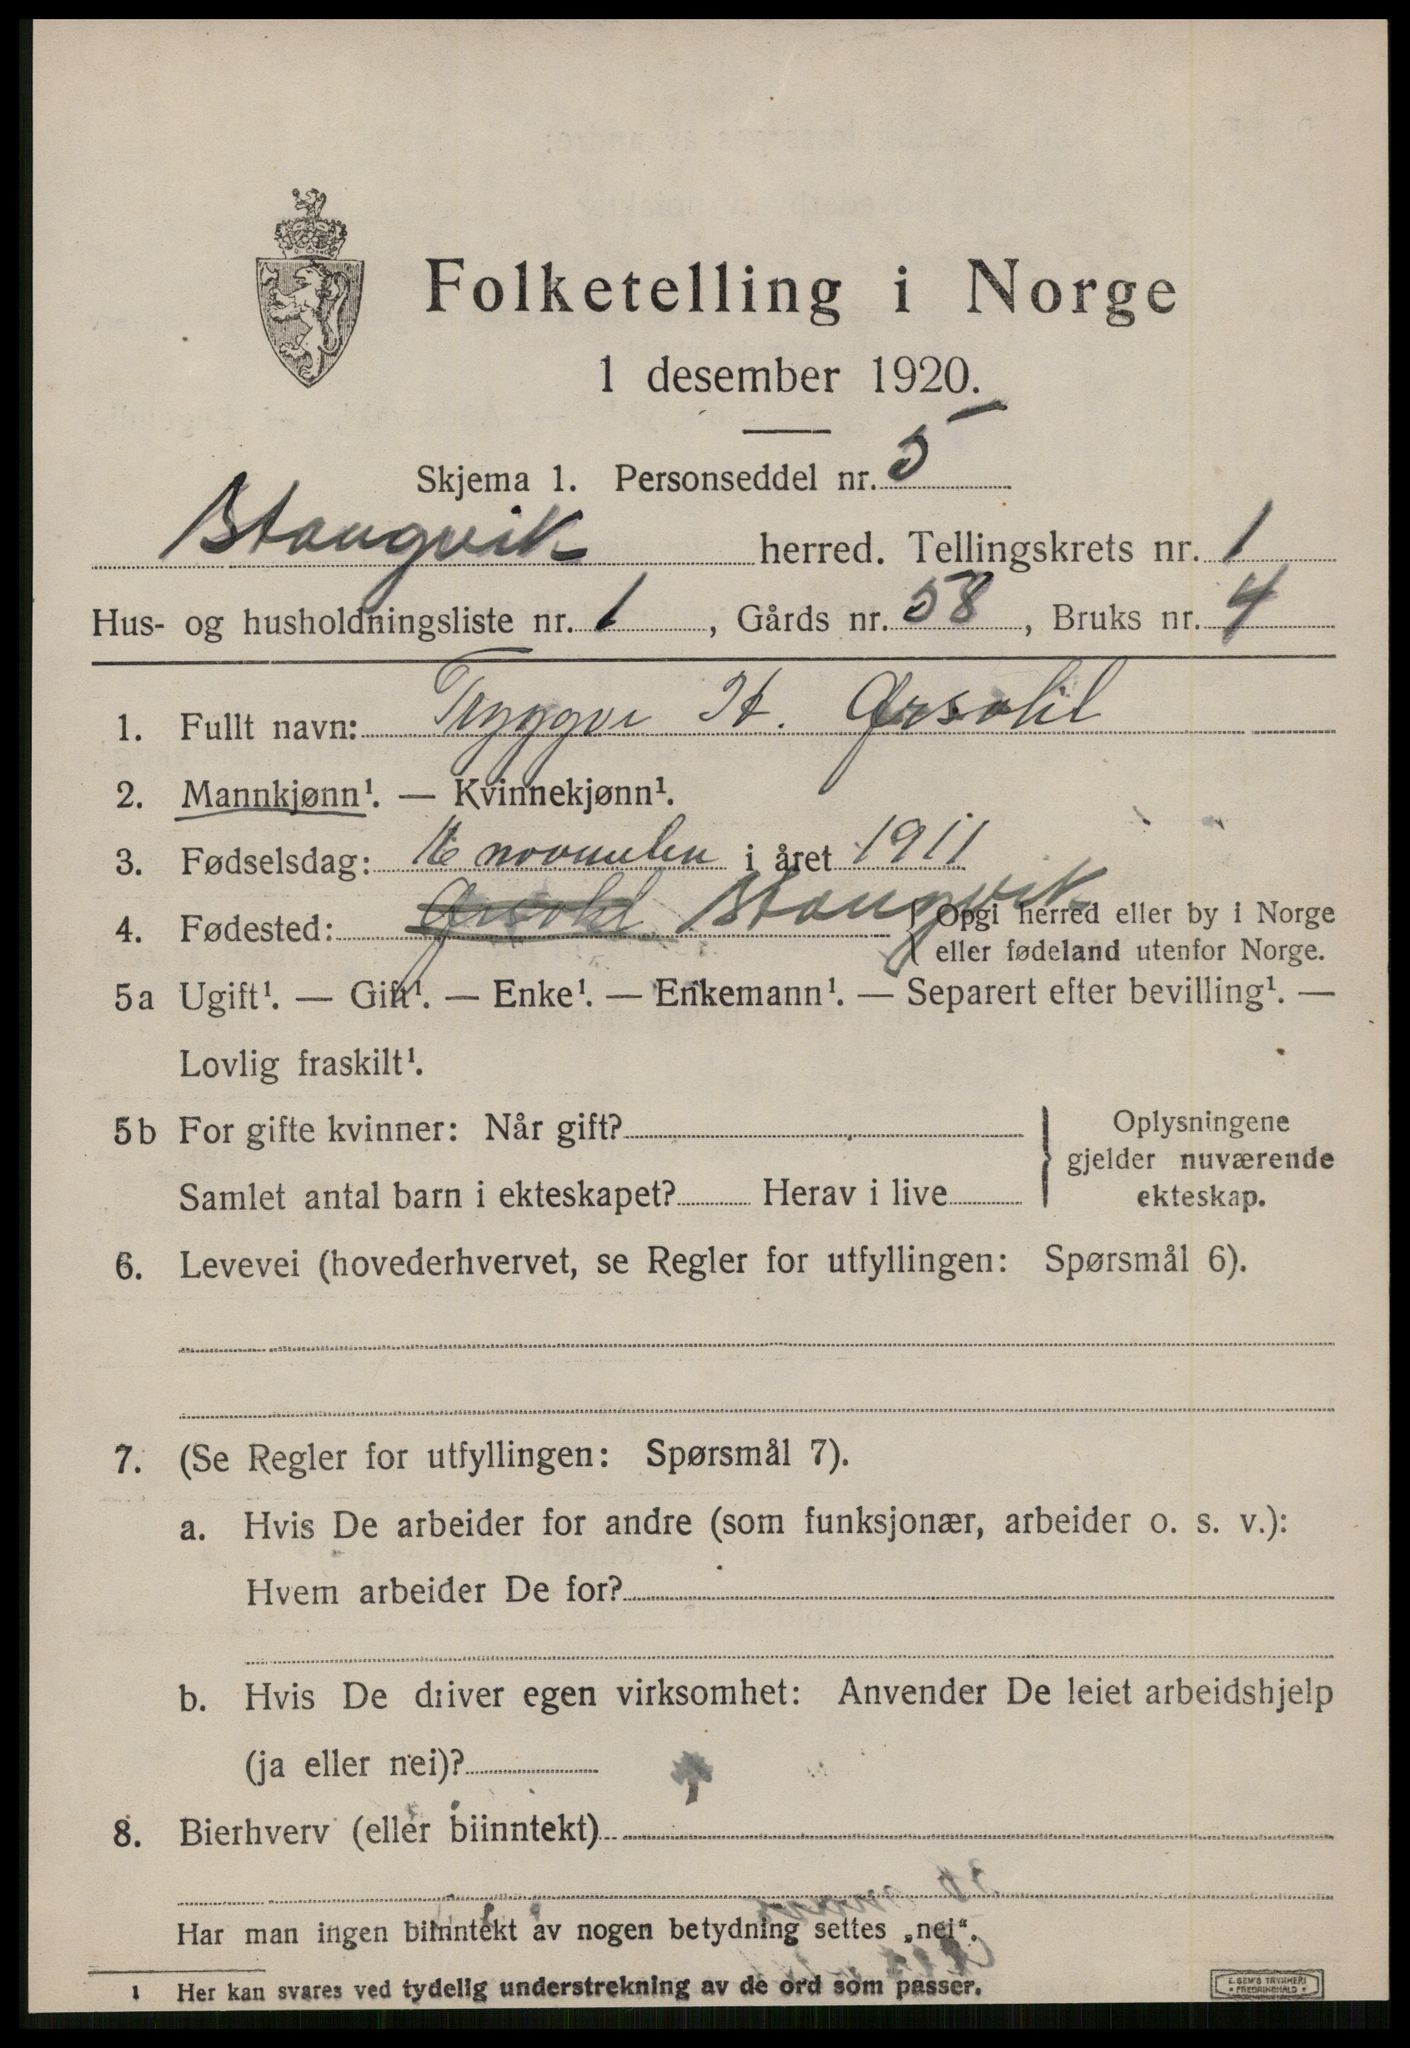 Folketelling i Norge
1 desember 1920.
Skjema 1. Personseddel nr. 5
Stangvik herred. Tellingskrets nr. 1
Hus- og husholdningsliste nr. 1, Gårds nr. 58, Bruks nr. 4
1. Fullt navn: Tryggve H.
2. Mannkjønn¹. — Kvinnekjønn¹.
3. Fødselsdag: 16 november i året 1911
4. Fødested: Stangvik { Opgi herred eller by i Norge
eller fødeland utenfor Norge.
5a Ugift¹. — Gift¹. — Enke¹. — Enkemann¹. — Separert efter bevilling¹. —
Lovlig fraskilt¹.
5b For gifte kvinner: Når gift?
Samlet antal barn i ekteskapet? Herav i live
} Oplysningene
gjelder nuværende
ekteskap.
6. Levevei (hovederhvervet, se Regler for utfyllingen: Spørsmål 6).
7. (Se Regler for utfyllingen: Spørsmål 7).
a. Hvis De arbeider for andre (som funksjonær, arbeider o. s. v.):
Hvem arbeider De for?
b. Hvis De driver egen virksomhet: Anvender De leiet arbeidshjelp
(ja eller nei)?
8. Bierhverv (eller biinntekt)
Har man ingen biinntekt av nogen betydning settes „nei“.
1 Her kan svares ved tydelig understrekning av de ord som passer.
E. SEM'S TRYKKERI
FREDRIKSHALD